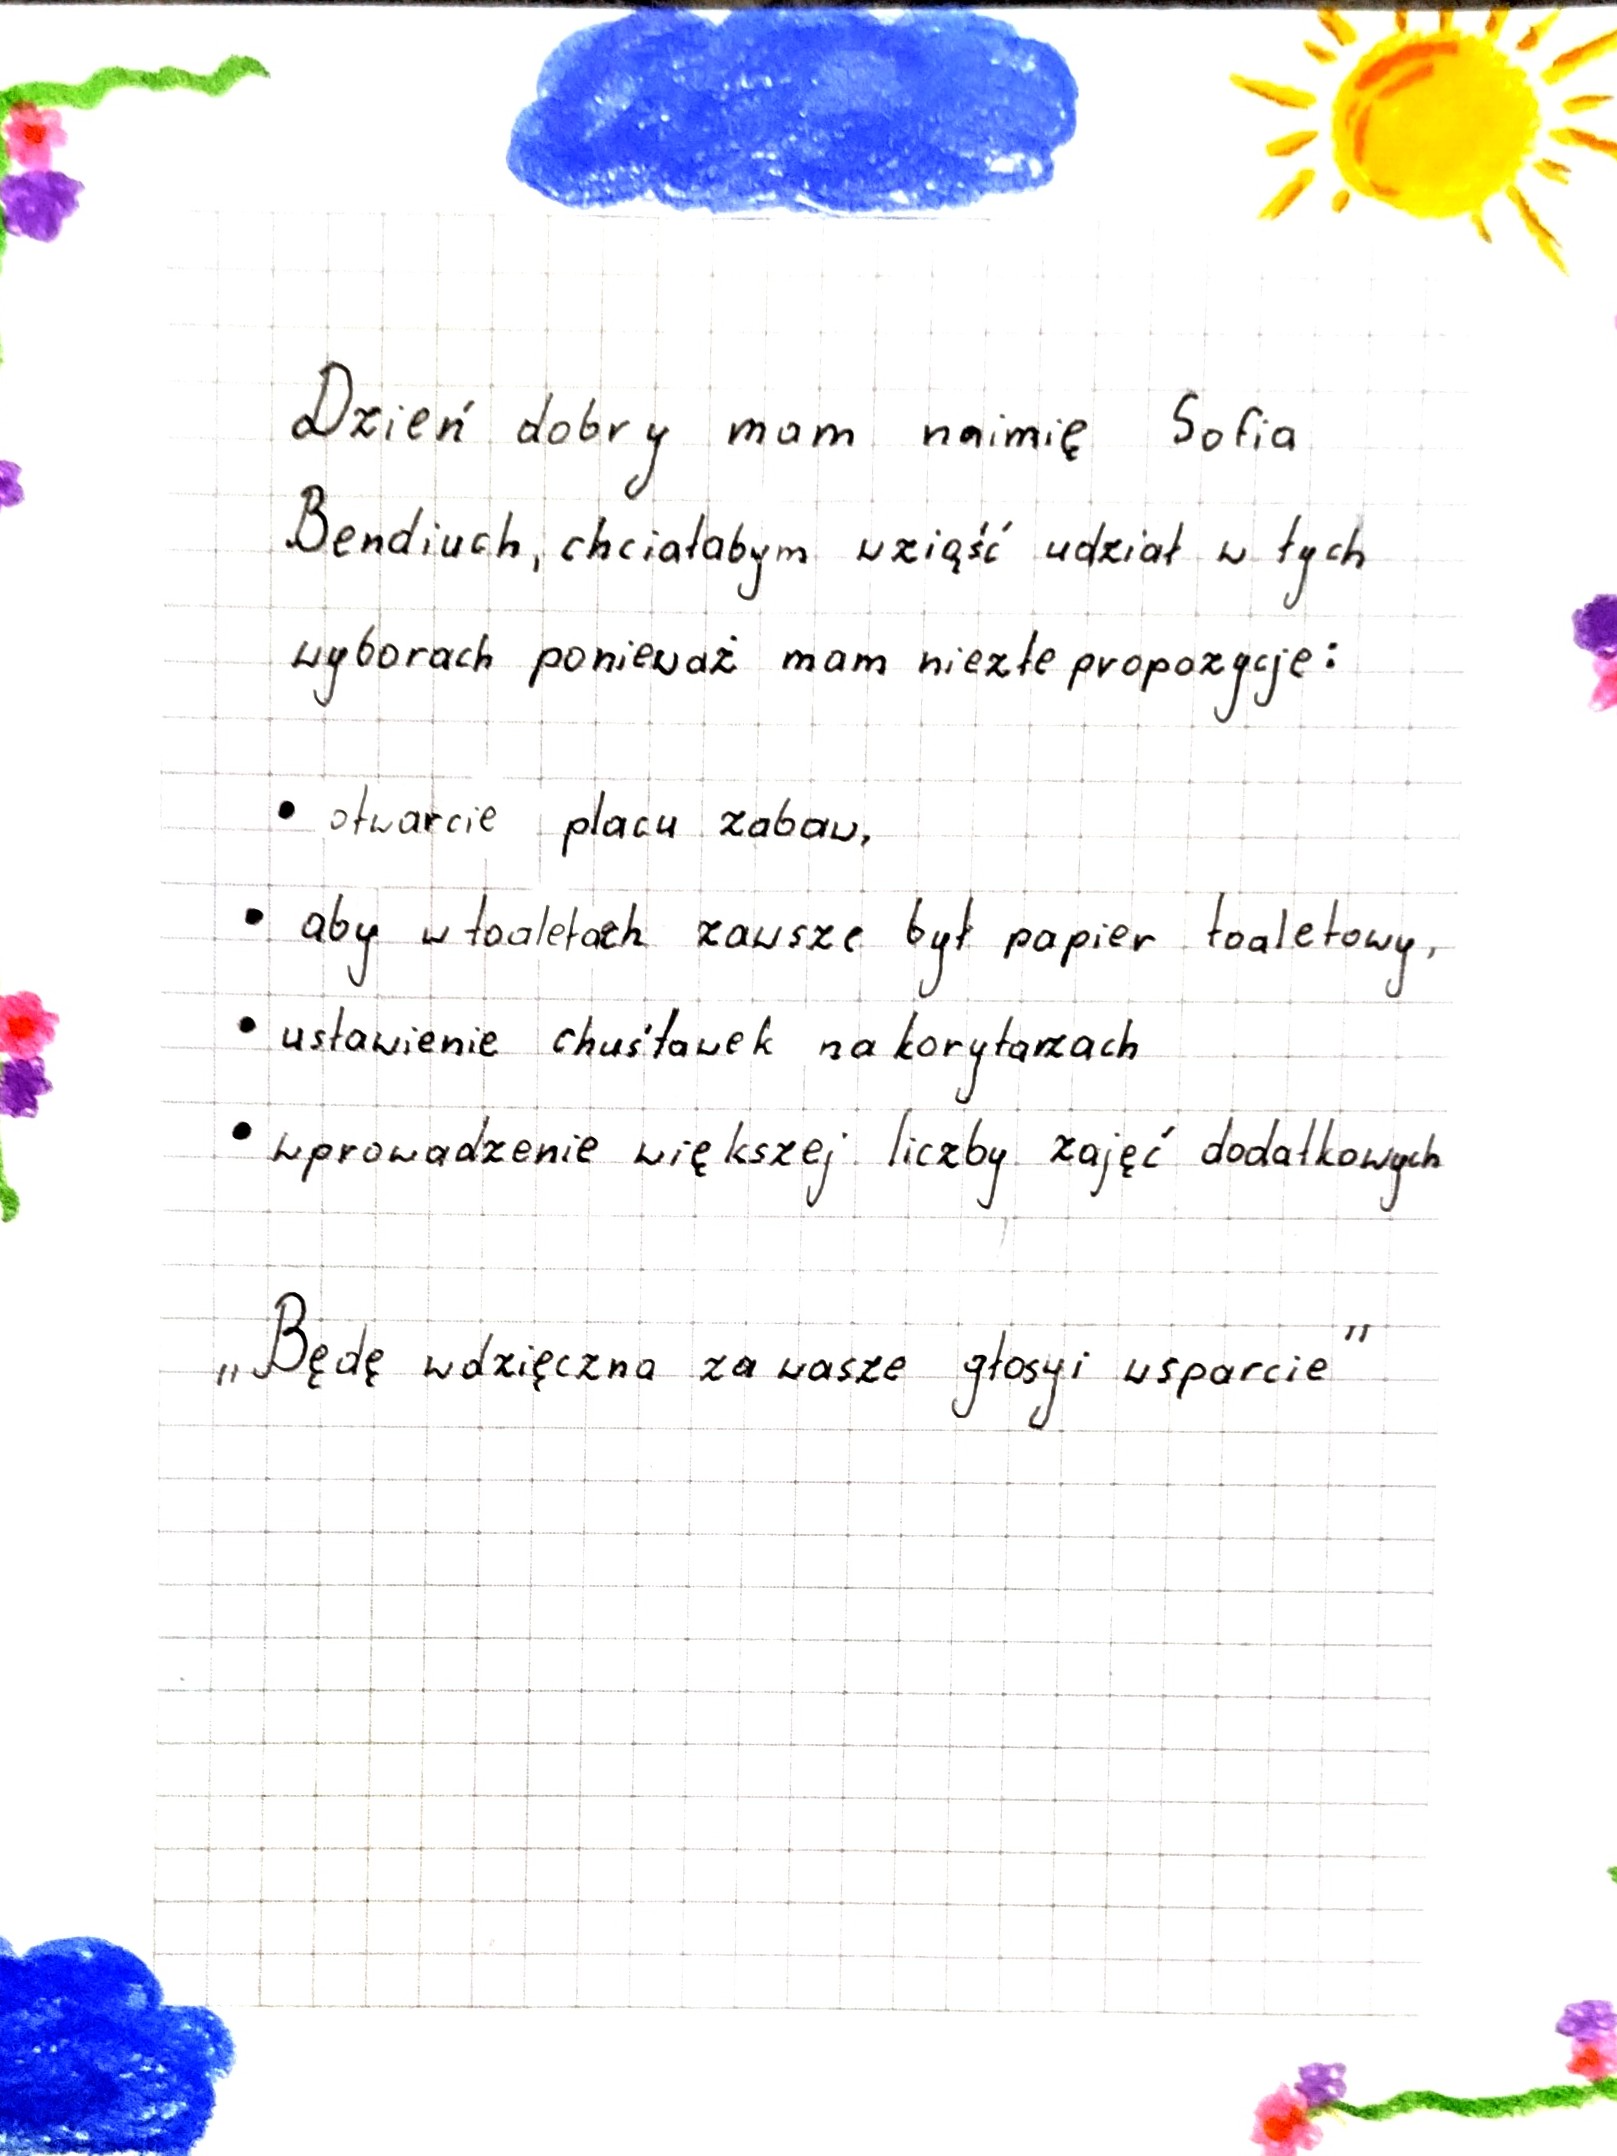 Dzień dobry mam naimię Sofia
Bendiuch, chciałabym wziąść udział w tych
wyborach ponieważ mam niezłe propozycje:
• otwarcie placu zabaw,
• aby w toaletach zawsze był papier toaletowy,
• ustawienie chuśtawek na korytarzach
• wprowadzenie większej liczby zajęć dodatkowych
„Będę wdzięczna za wasze głosy i wsparcie"